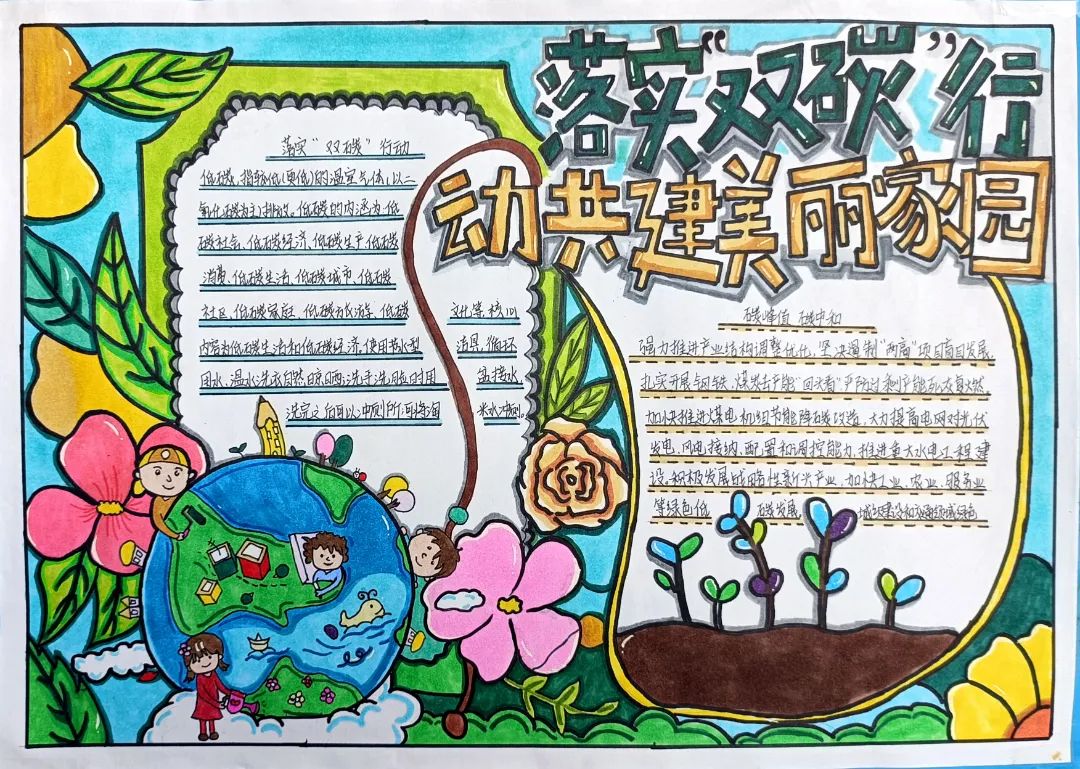 落实“双碳”行
动共建美丽家园
落实“双碳”行动
低碳,指较低(更低)的温室气体(以二
氧化碳为主)排放。低碳的内涵为低
碳社会、低碳经济、低碳生产、低碳
消费、低碳生活、低碳城市、低碳
社区、低碳家庭、低碳旅游、低碳
文化等核心
内容为低碳生活和低碳经济,使用节水型
洁具,循环
用水,温水洗衣自然晾晒,洗手洗脸时用
盆接水,
洗完之后可以冲厕所,可将淘
米水冲厕。
碳峰值 碳中和
强力推进产业结构调整优化,坚决遏制“两高”项目盲目发展,
扎实开展与钢铁、煤炭去产能“回头看”
加快推进煤电机组节能降碳改造,大力提高电网对光伏
发电、风电接纳、配置和调控能力,推进重大水电工程建
设,积极发展战略性新兴产业,加快工业、农业、服务业
等绿色低 碳发展 城乡建设和交通领域绿色